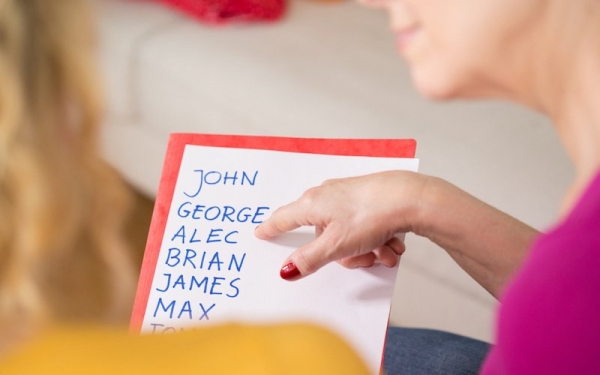 JOHN
GEORGE
ALEC
BRIAN
JAMES
MAX